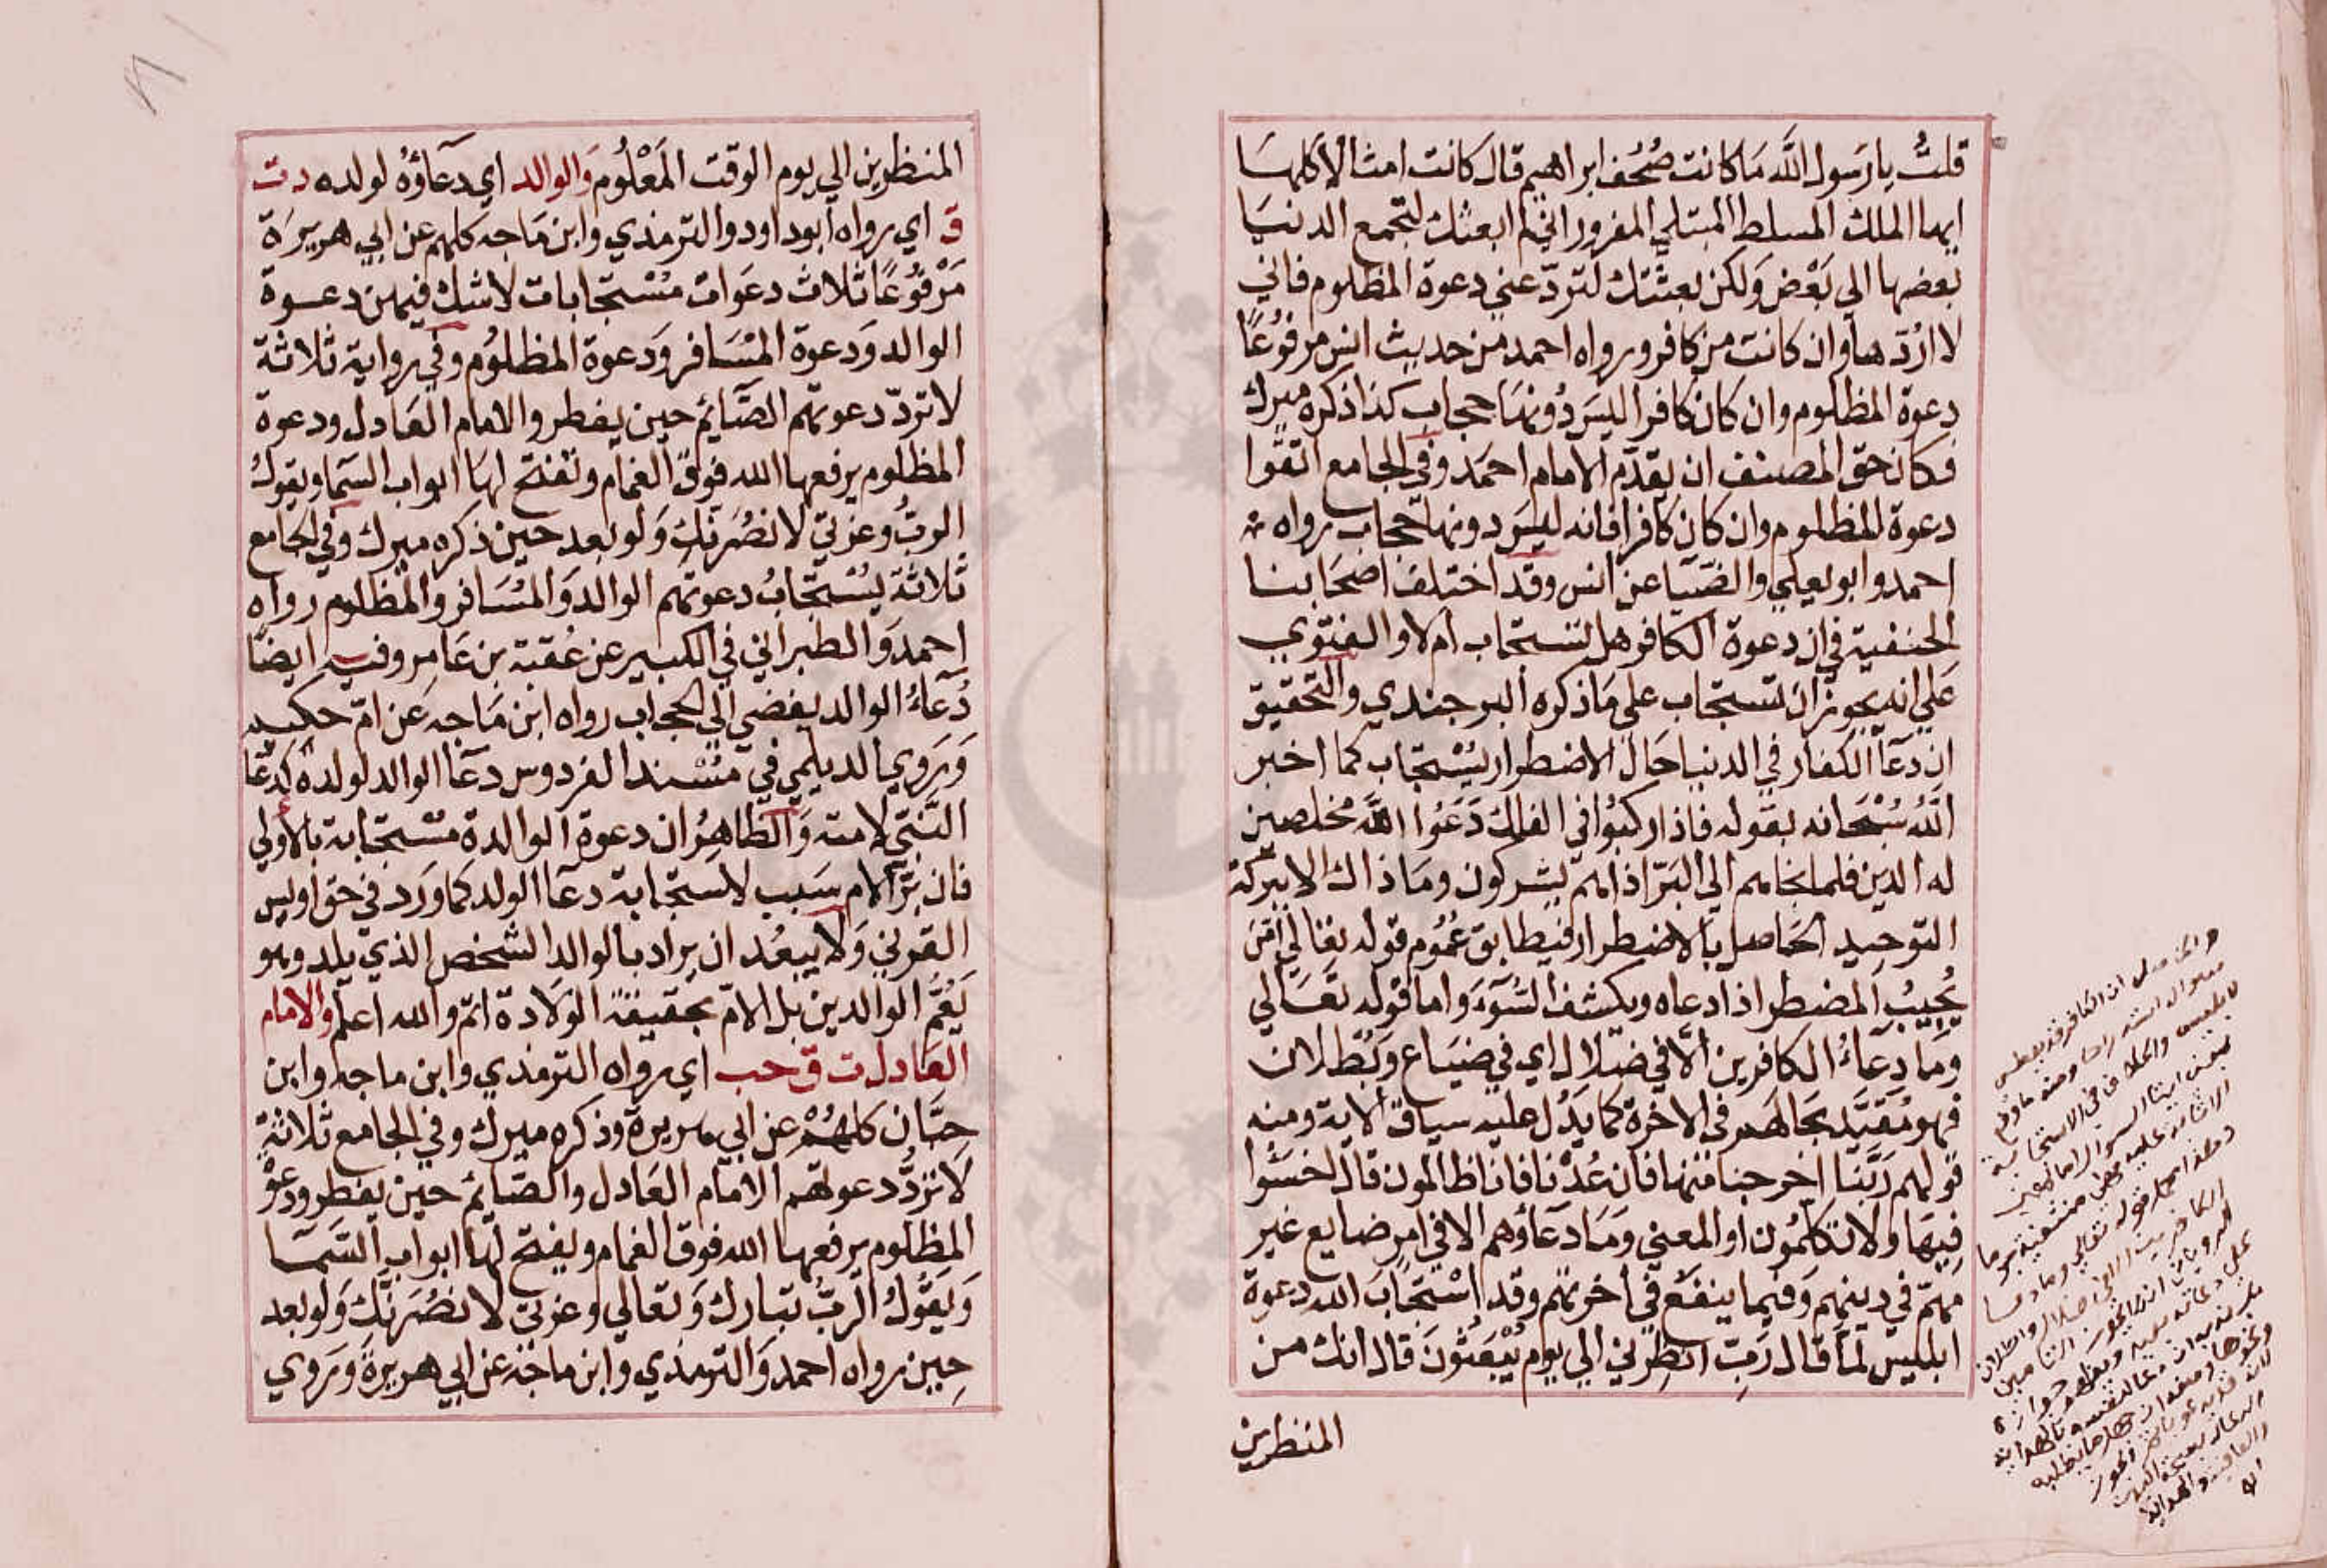 قلتُ يا رَسول اللَّه مَا كانت صُحُف ابراهيم قال كانت امثالا كلها
ايها الملك المسلط المبتلي المغرور اني لم ابعثك لتجمع الدنيا
بعضها الي بَعْض وَلكن بعثتك لتردّ عني دعوة المظلوم فاني
لا اردّها وان كانت من كافر ورواه احمد من حديث انس مرفوُعًا
دعوة المظلوم وان كان كافرا ليسَ دُونها حجاب كذا ذكره ميرك
فكان حق المصنف ان يقدّم الامام احمَد وفي الجامع اتقوا
دعوة المظلوم وان كان كافرا فانه ليسَ دونها حجاب رواه
احمد وابو يعلي والضيا عن انس وقد اختلف اصحَابنا
الحنفية في ان دعوة الكافر هل تستجاب ام لا والفتوي
عَلي انه يجوز ان تستجاب علي مَا ذكره البرجندي والتحقيق
ان دعآ الكفار في الدنيا حَال الاضطرار يُسْتجاب كما اخبر
اللَّه سُبْحَانه بقوله فاذا ركبوُا في الفلك دَعَوُا اللَّه مخلصين
له الدين فلما نجاهم الي البَرّ اذا هم يشركون ومَا ذاك الا ببركة
التوحيد الحَاصل بالاضطرار فيطابق عُمُوم قوله تعَالي امّن
يُجيبُ المضطر اذا دعاه ويكشف السُّوٓءَ وَاما قوله تعَالي
وَمَا دعَآءُ الكافرين الَّا في ضَلال اي في ضيَاع وَبُطلان
فهو مُقَيَّد بحَالهَم في الاخرة كما يَدُل عليه سياق الاية ومنه
قولهم رَبَّنا اخرجنا منها فان عُدْنا فانا ظالمون قال اخسَئوا
فِيهَا وَلا تكلمُون او المعني وَمَا دعَآؤهم الا في امر ضايع غير
مهمّ في دينهم وَفيما ينفعُ في اخرتهم وقد اسْتجَابَ الله دعوة
ابليس لمّا قال رَبِّ انظِرْني الي يوم يُبْعَثُونَ قال انك من
المنظرين
المنظرين الي يوم الوقت المَعْلُوم وَالوالد اي دعَآؤهُ لولده د ت
ق اي رواه ابو داود والترمذي وابن مَاجه كلهم عن ابي هريرَة
مَرْفوُعًا ثلاث دعَوَات مُسْتجَابات لا شك فيهن دعوة
الوالد وَدعوة المسَافر وَدعوة المظلوُم وفي رواية ثلاثة
لا تردّ دعوتهم الصَّايمُ حين يفطر والامام العَادل ودعوة
المظلوم يرفعها الله فوق الغمام وتفتح لها ابواب السَّما ويقول
الربُّ وعزتي لا نصُرَنك وَلو بعد حين ذكره ميرك وفي الجامع
ثلاثة يُسْتجَابُ دعوتهم الوالد وَالمسَافر وَالمظلوم رواه
احمد وَالطبراني في الكبير عن عُقبة بن عَامر وفيه ايضًا
دُعَآءُ الوالد يفضي الي الحجاب رواه ابن مَاجه عَن امّ حكيم
وَيَروي الديلمي في مُسْند الفردوس دعآ الوالد لولده كدعَآ
النَّبيّ لامته وَالظاهِرُ ان دعوة الوالدة مسْتجابة بالاولي
فان برّ الام سَبب لاستجابة دعآ الولد كما وَرَد في حق اويس
القرني وَلا يبعُد ان يراد بالوالد الشخص الذي يلد وهو
يَعُمّ الوالدين بل الامّ بحقيقة الولَادة اتم والله اعلم وَالامام
العَادل ت ق حب اي رواه الترمذي وابن ماجه وابن
حِبَّان كلهُمْ عن ابي هريرة وذكره ميرك وفي الجامع ثلاثةٌ
لا تردُّ دعوتهم الامَام العَادل والصَايمُ حين يفطر ودعوَة
المظلوم يرفعها الله فوق الغمام ويفتح لها ابواب السَّما
وَيَقوُل الربُّ تبارك وَتعالي وعزتي لا نصُرَنَّك وَلو بعد
حِين رواه احمد وَالترمذي وابن ماجَه عن ابي هريرةَ وَيَروي